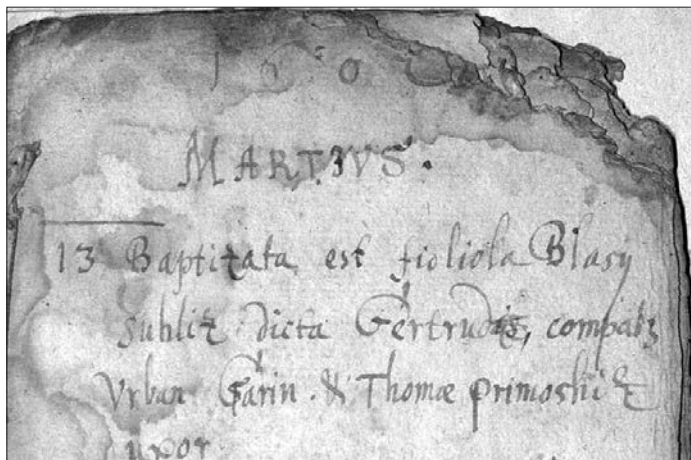 MARTIVS.
13 Baptizata est fioliola Blasy
subliz dicta Gertrudis, compatz
Vrban Garin. & Thomæ primoshiz
uxor